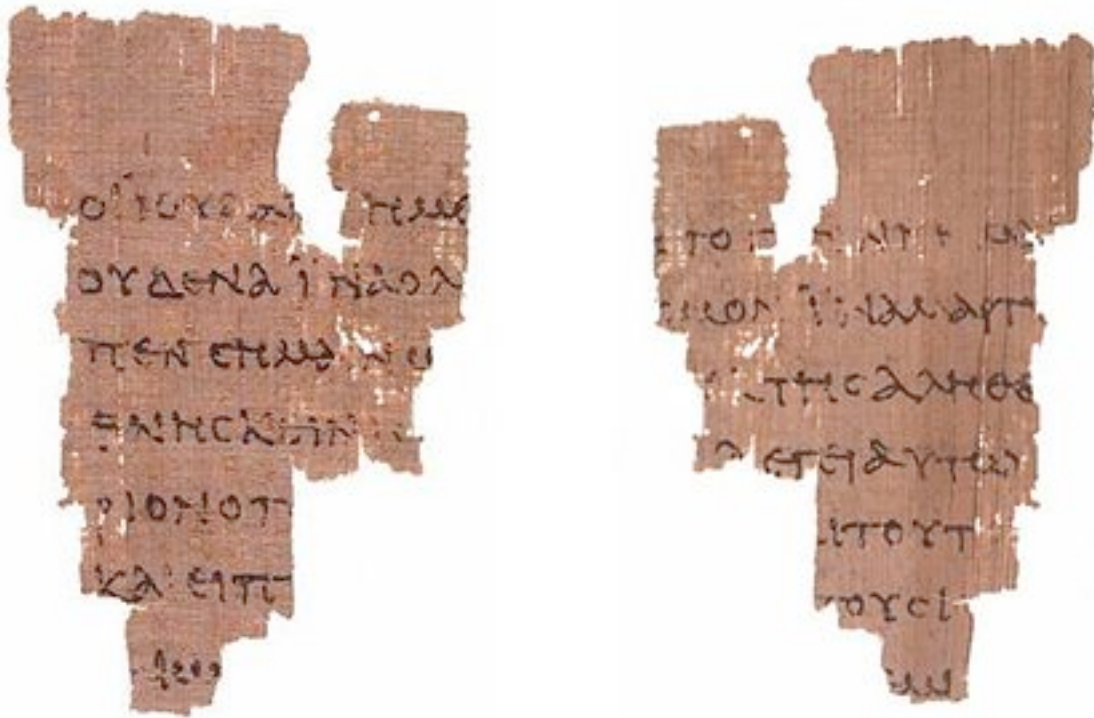 ΟΙ ΙΟΥΔΑΙ ΗΜΕ
ΟΥΔΕΝΑ ΪΝΑ Ο Λ
ΠΕΝ CΗΜΑΙΝΩ
ΘΝΗCΚΕΙΝ
ΡΙΟΝ Ο Π
ΚΑΙ ΕΙΠ
CΜΟΝ ΪΝΑ ΜΑΡΤΥ
ΤΗC ΑΛΗΘΕ
ΛΕΓΕΙ ΑΥΤΩ
ΑΙ ΤΟΥΤ
ΤΟΥC Ι